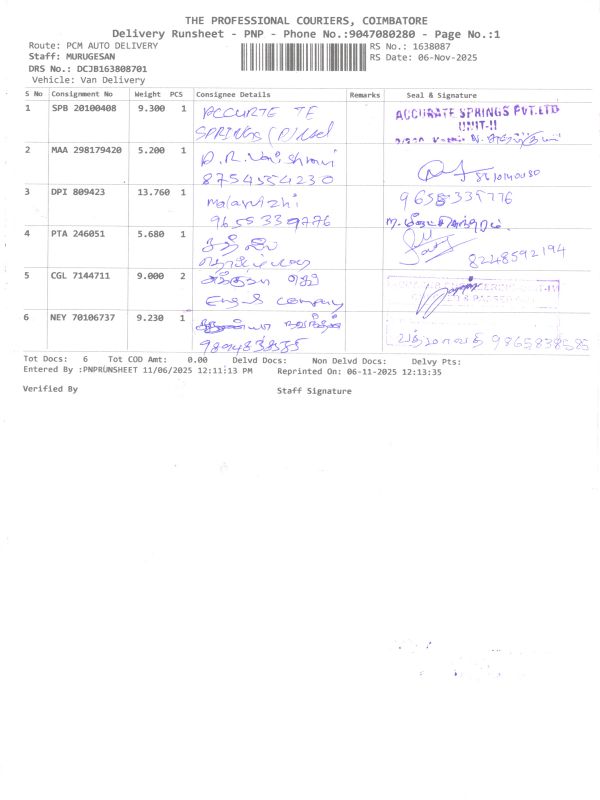 THE PROFESSIONAL COURIERS, COIMBATORE
Delivery Runsheet - PNP - Phone No.:9047080280 - Page No.:1
Route: PCM AUTO DELIVERY RS No.: 1638087
Staff: MURUGESAN RS Date: 06-Nov-2025
DRS No.: DCJB163808701
Vehicle: Van Delivery
S No Consignment No Weight PCS Consignee Details Remarks Seal & Signature
1 SPB 20100408 9.300 1 ACCURTE TE ACCURATE SPRINGS PVT.LTD
SPRINGS (P) Ltd UNIT-II
2 MAA 298179420 5.200 1 D.R. Vani Shrowi
8754554230
3 DPI 809423 13.760 1 Malarvizhi 9655335776
9655339776
4 PTA 246051 5.680 1 சக்தி
8248592194
5 CGL 7144711 9.000 2
Engg Company
6 NEY 70106737 9.230 1
9894838585 9865838585
Tot Docs: 6 Tot COD Amt: 0.00 Delvd Docs: Non Delvd Docs: Delvy Pts:
Entered By :PNPRUNSHEET 11/06/2025 12:11:13 PM Reprinted On: 06-11-2025 12:13:35
Verified By Staff Signature